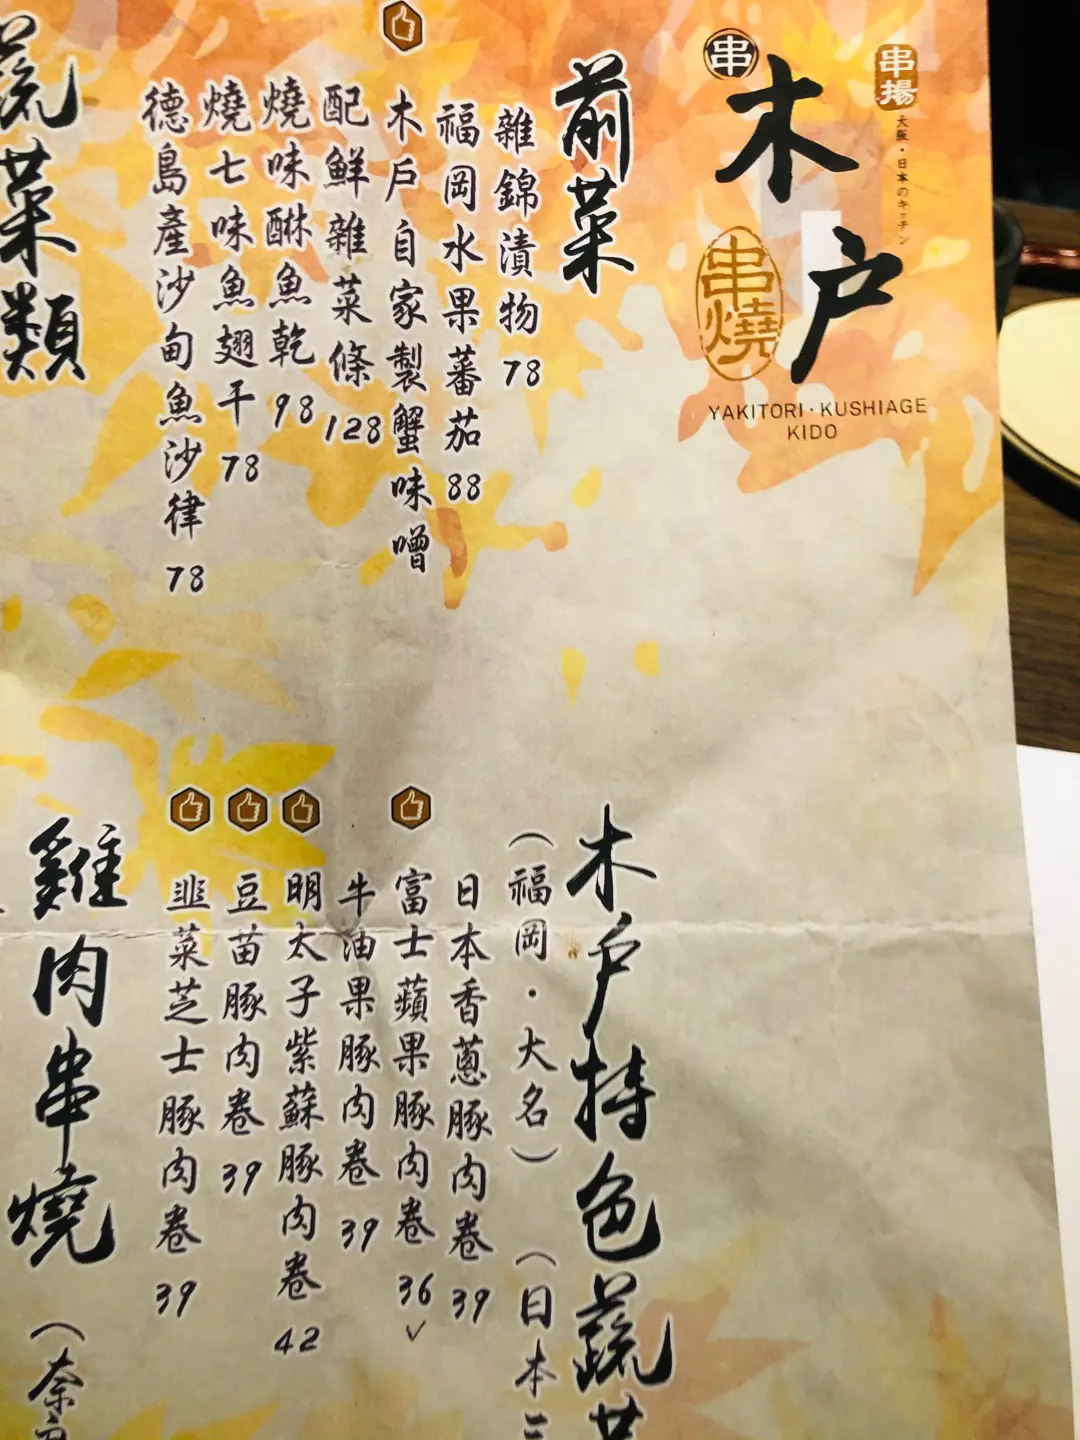 串
木戶
串揚
大阪・日本のキッチン
串燒
YAKITORI · KUSHIAGE
KIDO
前菜
雜錦漬物 78
福岡水果蕃茄 88
木戶自家製蟹味噌
配鮮雜菜條 128
燒味醂魚乾 98
燒七味魚翅干 78
德島產沙甸魚沙律 78
蔬菜類
木戶特色蔬菜
（福岡・大名）（日本三
日本香蔥豚肉卷 39
富士蘋果豚肉卷 36
牛油果豚肉卷 39
明太子紫蘇豚肉卷 42
豆苗豚肉卷 39
韮菜芝士豚肉卷 39
雞肉串燒（奈